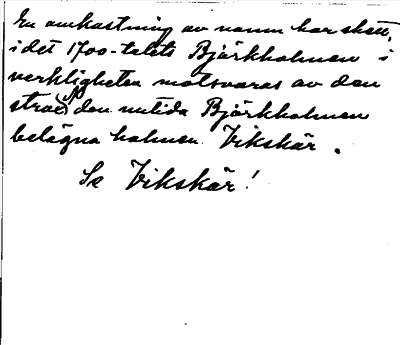 En omkastning av namn har skett,
i det 1700-talets Björkholmen i
verkligheten motsvaras av den
den nutida Björkholmen
belägna holmen Vikskär.
Se Vikskär!